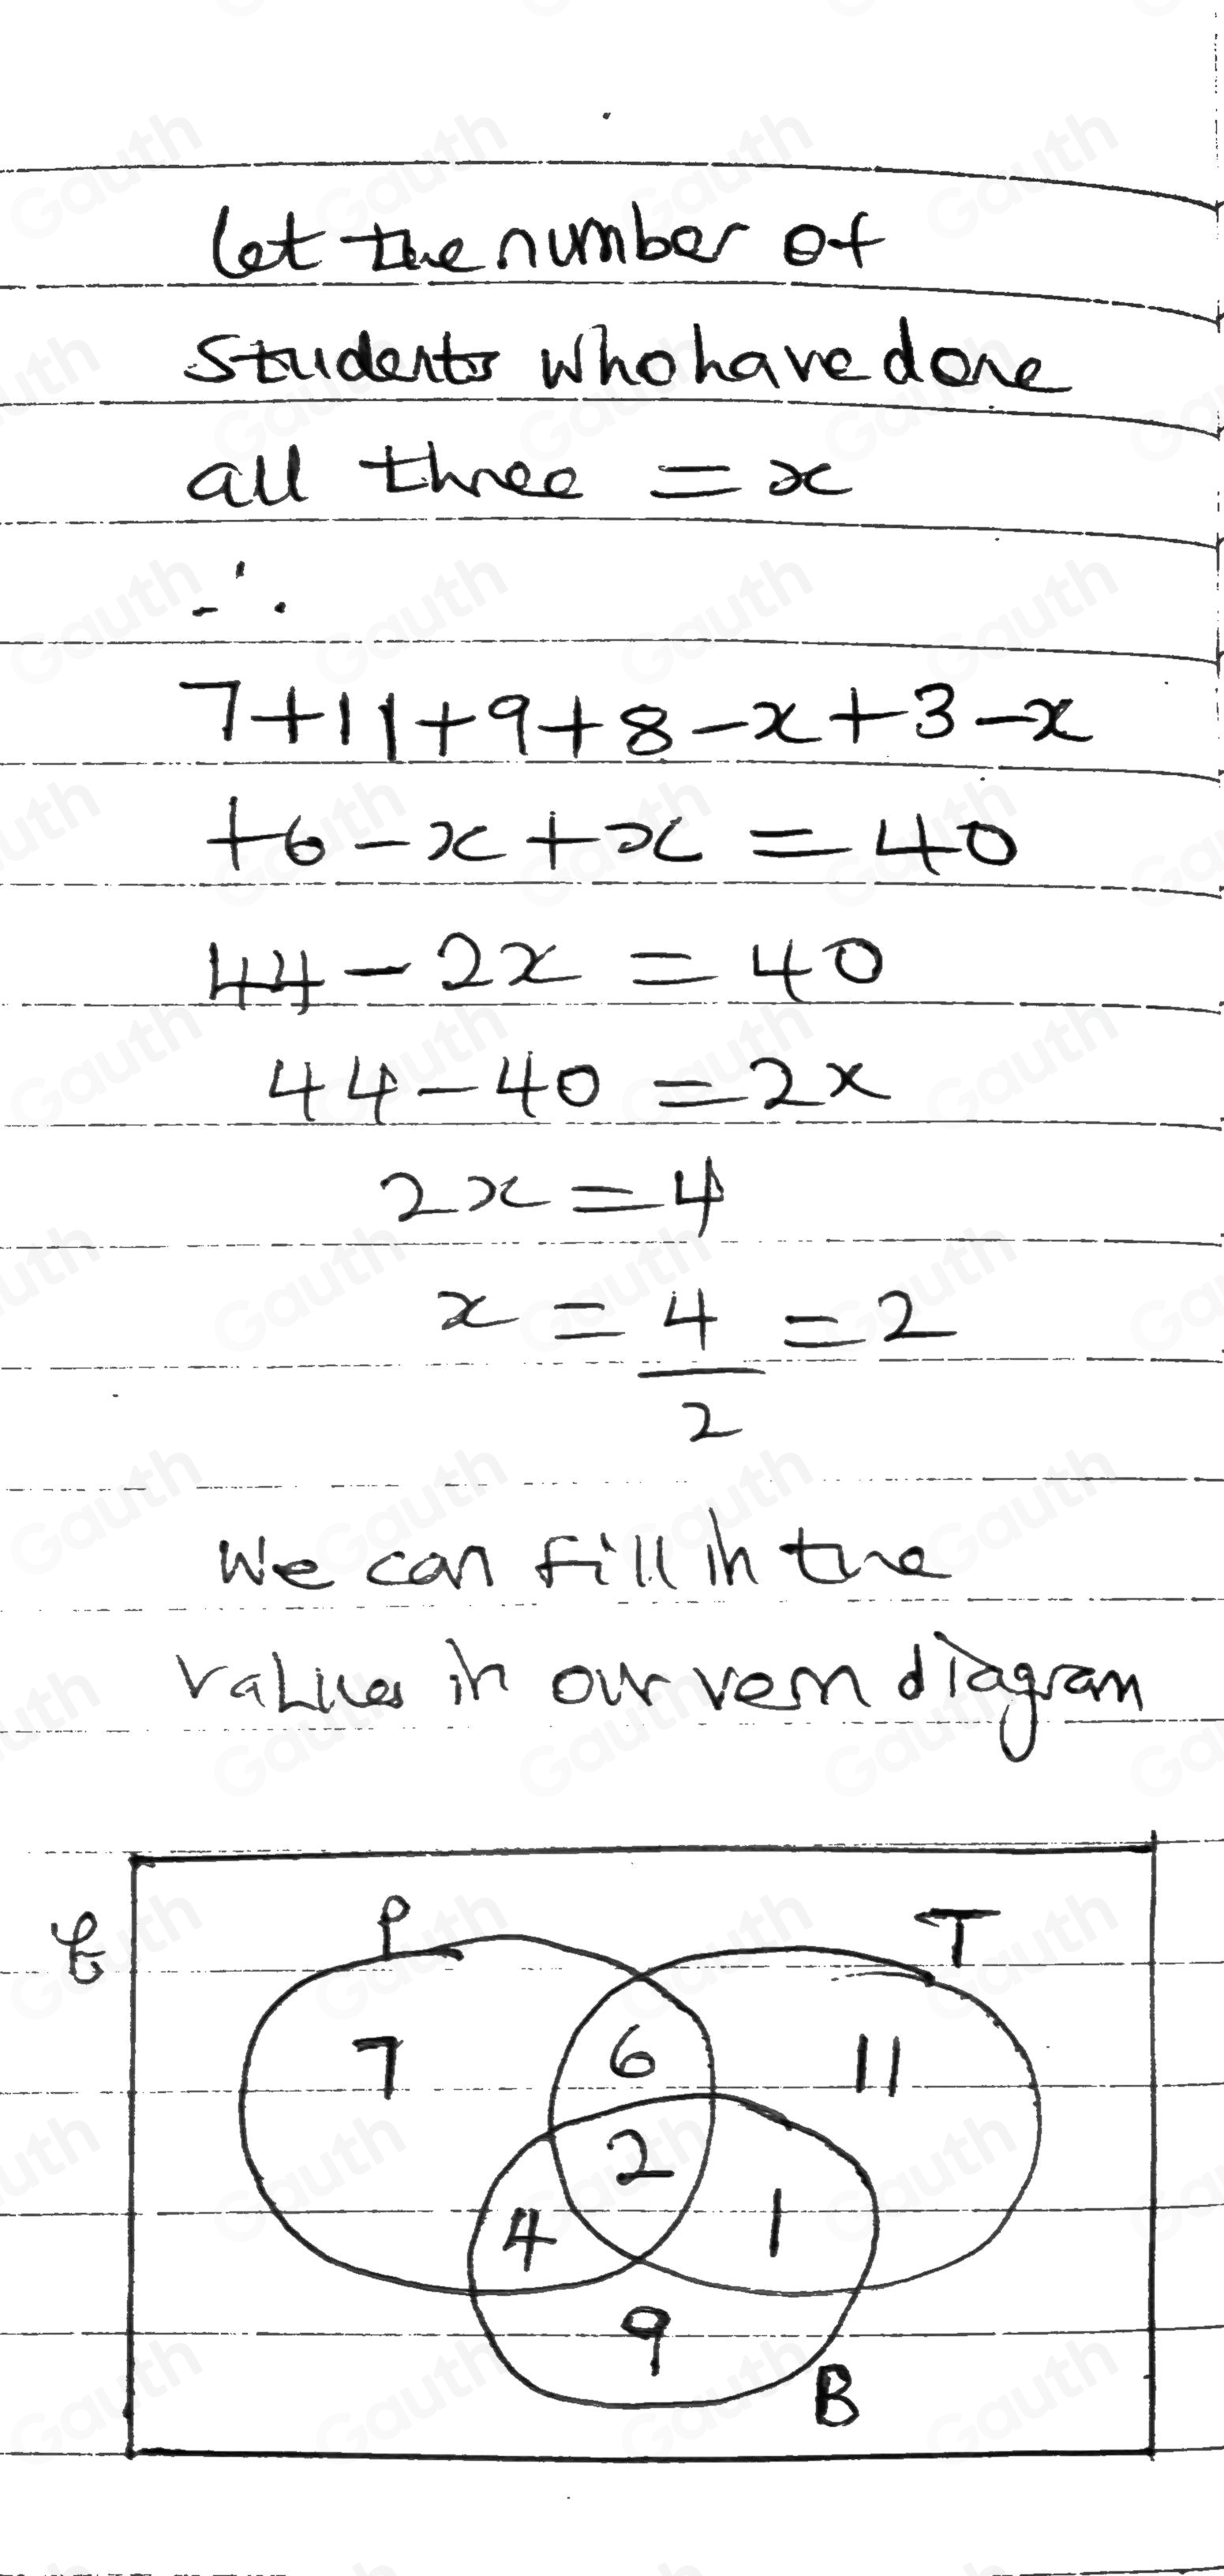 Let the number of
students who have done
all three = x
∴
7+11+9+8-x+3-x
+6-x+x = 40
44-2x = 40
44-40 = 2x
2x = 4
x = 4/2 = 2
We can fill in the
values in our venn diagram
P T
ℰ
7 6 11
2
4 1
9
B